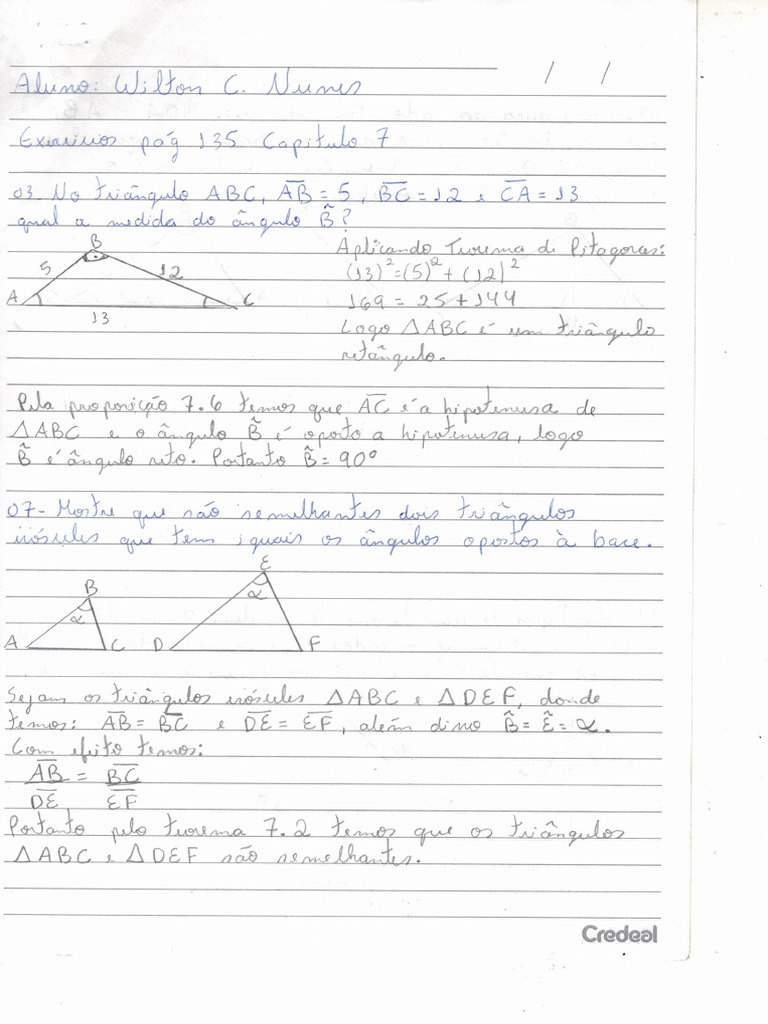 / /
Aluno: Wilton C. Nunes
Exercícios pág 135 Capitulo 7
03. No triângulo ABC, A̅B̅ = 5, B̅C̅ = 12 e C̅A̅ = 13
qual a medida do ângulo B̂?
B
5
12
A
C
13
Aplicando Teorema de Pitagoras:
(13)² = (5)² + (12)²
169 = 25 + 144
Logo △ABC é um triângulo
retângulo.
Pela proposição 7.6 temos que A̅C̅ é a hipotenusa de
△ABC e o ângulo B̂ é oposto a hipotenusa, logo
B̂ é ângulo reto. Portanto B̂ = 90º
07- Mostre que são semelhantes dois triângulos
isósceles que tem iguais os ângulos opostos à base.
B
α
A
C
E
α
D
F
Sejam os triângulos isósceles △ABC e △DEF, donde
temos: A̅B̅ = B̅C̅ e D̅E̅ = E̅F̅, além disso B̂ = Ê = α.
Com efeito temos:
A̅B̅ = B̅C̅
D̅E̅ E̅F̅
Portanto pelo teorema 7.2 temos que os triângulos
△ABC e △DEF são semelhantes.
Credeal